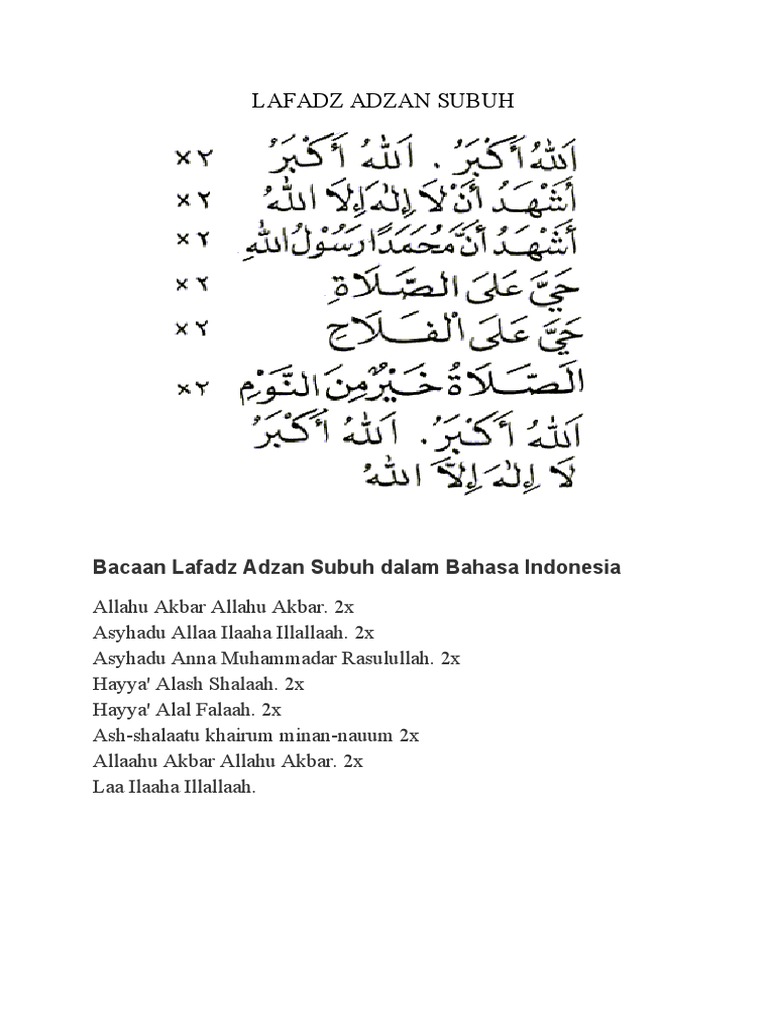 LAFADZ ADZAN SUBUH
اَللهُ أَكْبَرُ . اَللهُ أَكْبَرُ ×٢
أَشْهَدُ أَنْ لَا إِلٰهَ إِلَّا اللهُ ×٢
أَشْهَدُ أَنَّ مُحَمَّدًا رَسُوْلُ اللهِ ×٢
حَيَّ عَلَى الصَّلَاةِ ×٢
حَيَّ عَلَى الْفَلَاحِ ×٢
اَلصَّلَاةُ خَيْرٌ مِنَ النَّوْمِ ×٢
اَللهُ أَكْبَرُ . اَللهُ أَكْبَرُ
لَا إِلٰهَ إِلَّا اللهُ
Bacaan Lafadz Adzan Subuh dalam Bahasa Indonesia
Allahu Akbar Allahu Akbar. 2x
Asyhadu Allaa Ilaaha Illallaah. 2x
Asyhadu Anna Muhammadar Rasulullah. 2x
Hayya' Alash Shalaah. 2x
Hayya' Alal Falaah. 2x
Ash-shalaatu khairum minan-nauum 2x
Allaahu Akbar Allahu Akbar. 2x
Laa Ilaaha Illallaah.